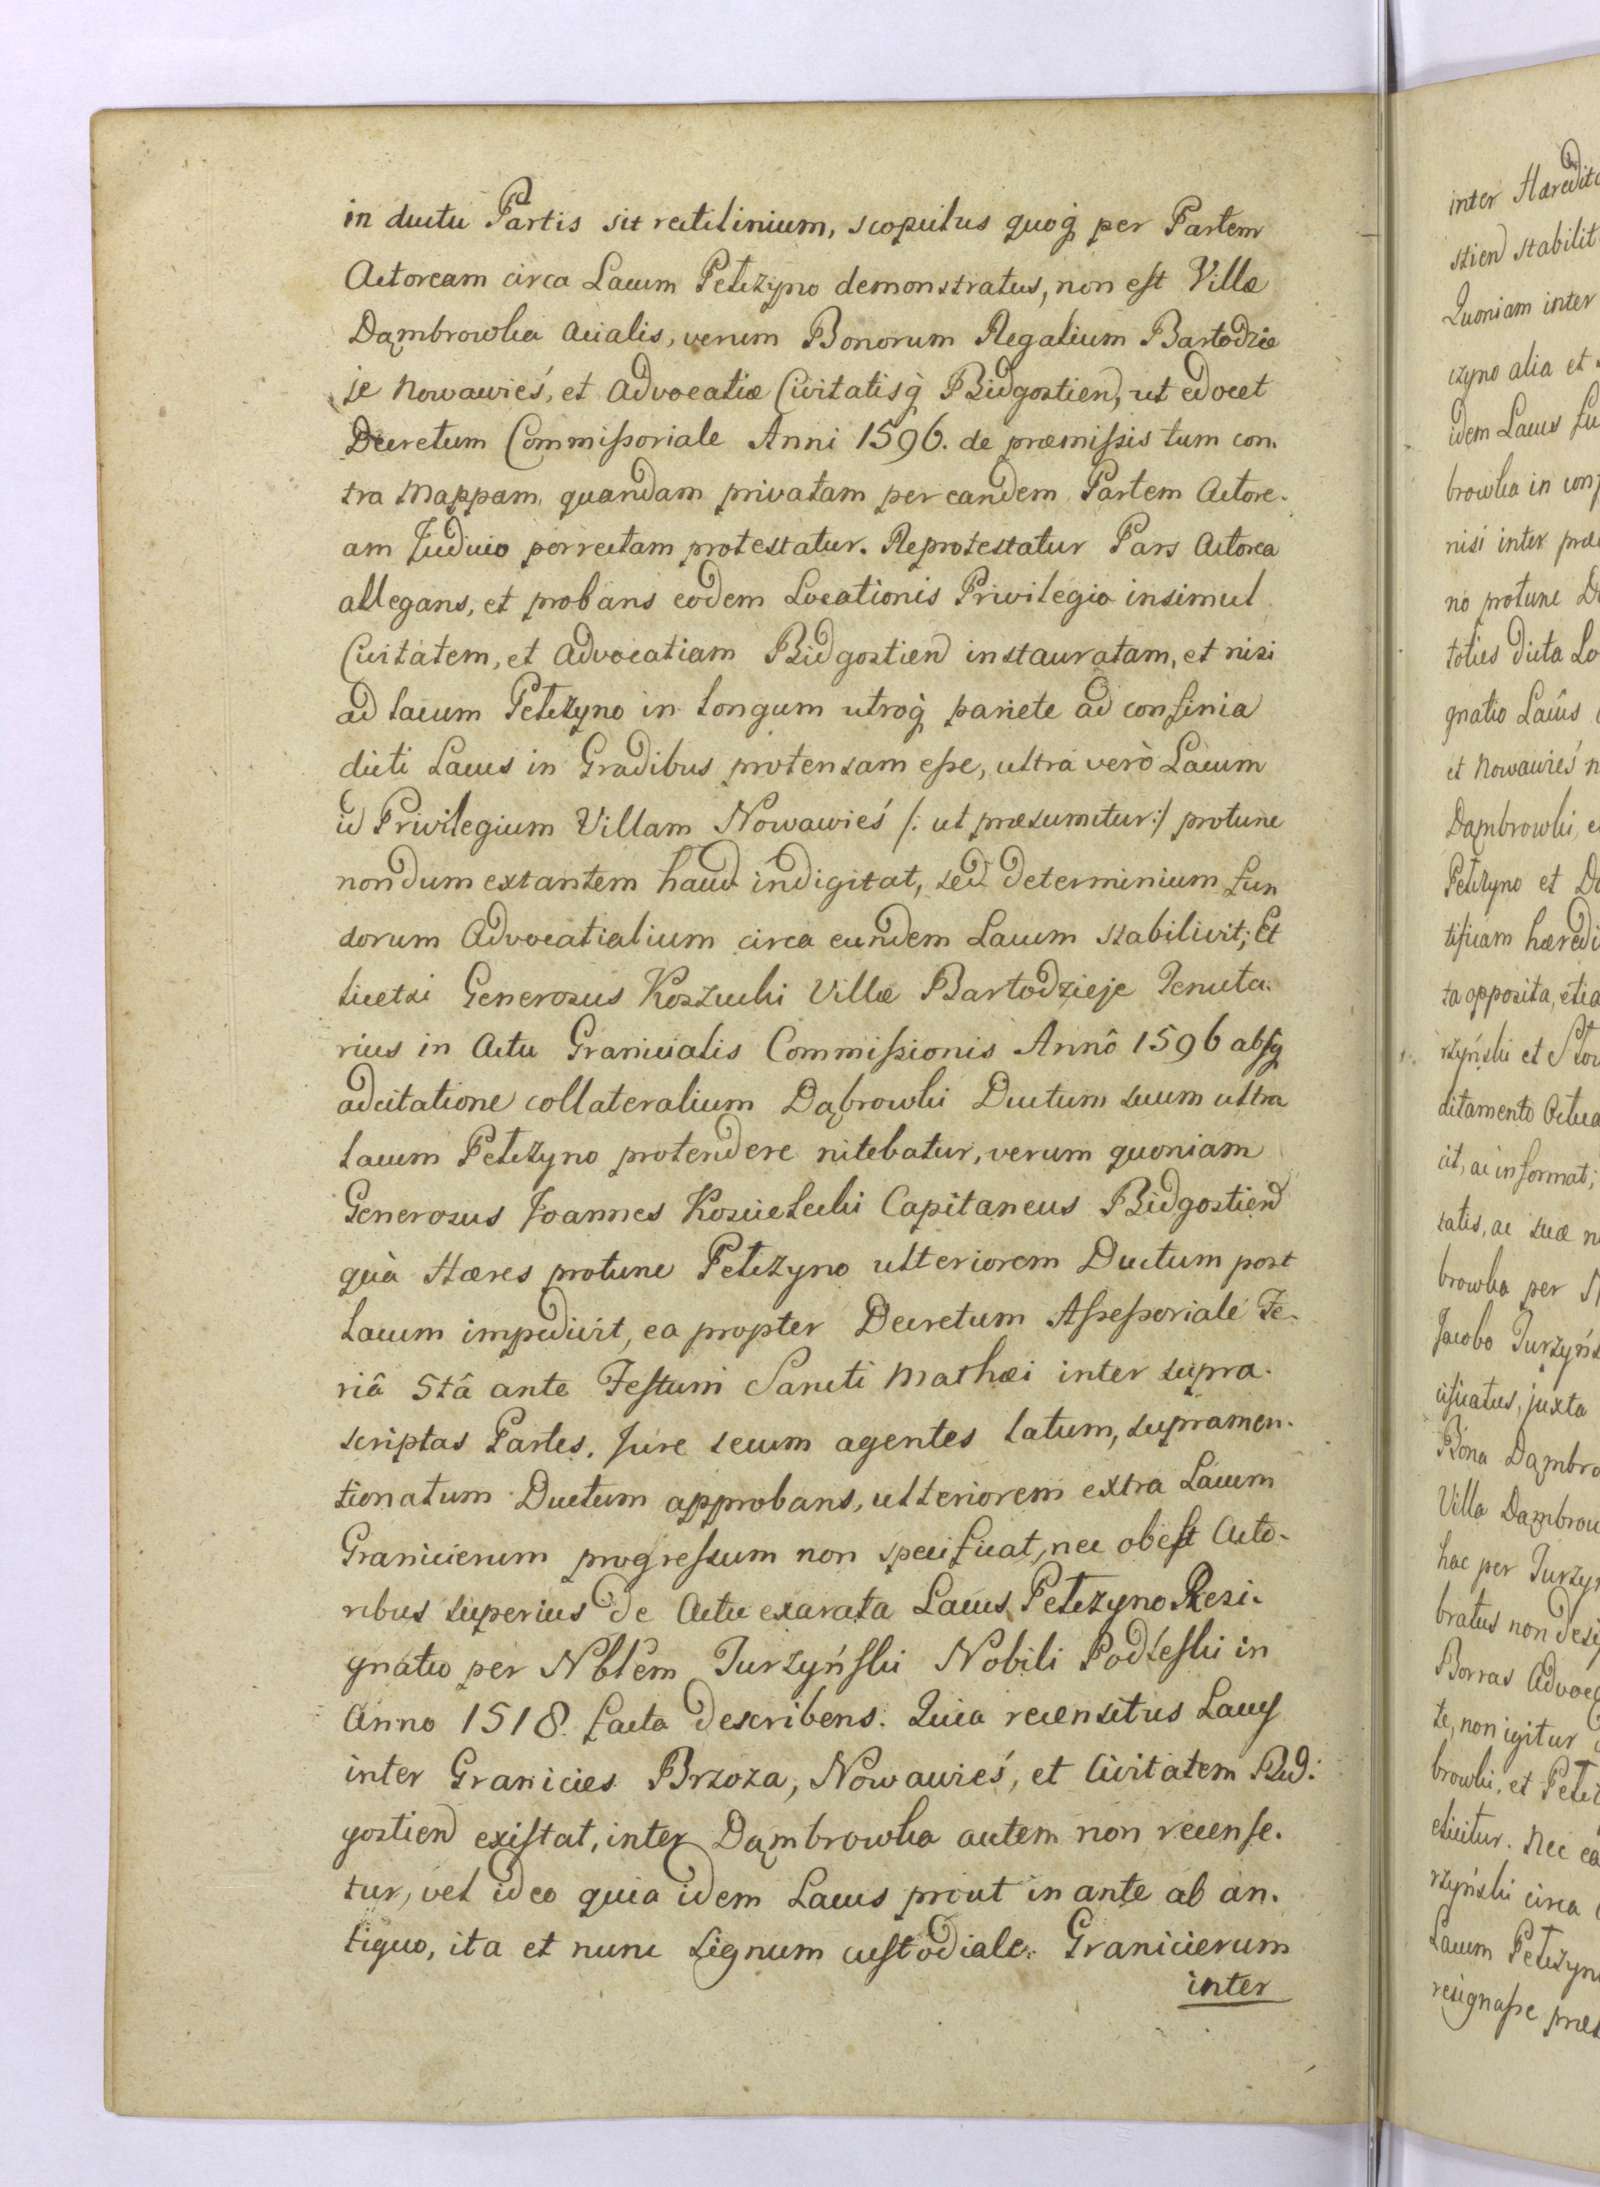 in ductu Partis sit rectilinium, scopulus quoq̀ per Partem
Actoream circa Lacum Petczyno demonstratus, non est Villæ
Dąmbrowka acialis, verum Bonorum Regalium Bartodzie
je Nowawieś, et Advocatiæ Civitatisq̀ Bidgostien, ut edocet
Decretum Commissoriale Anni 1596. de præmissis tum con.
tra Mappam quandam privatam per eandem Partem Actore.
am Judicio porrectam protestatur. Reprotestatur Pars Actorea
allegans, et probans eodem Locationis Privilegio insimul
Civitatem, et Advocatiam Bidgostien instauratam, et nisi
ad lacum Petczyno in longum utroq̀ pariete ad confinia
dicti Lacus in Gradibus protensam esse, ultra verò Lacum
id Privilegium Villam Nowawieś /: ut præsumitur:/ protunc
nondum extantem haud indigitat, sed determinium fun
dorum Advocatialium circa eundem Lacum stabilivit; Et
licetsi Generosus Koszucki Villæ Bartodzieje Tenuta.
rius in Actu Granicialis Commissionis Annô 1596 absq̀
adcitatione collateralium Dąbrowki Ductum suum ultra
lacum Petczyno protendere nitebatur, verum quoniam
Generosus Joannes Koscielecki Capitaneus Bidgostien
quà Hæres protunc Petczyno ulteriorem Ductum post
Lacum impedivit, ea propter Decretum Assessoriale Fe-
riâ 5tâ ante Festum Sancti Mathæi inter supra.
scriptas Partes. Jure secum agentes latum, supramen.
tionatum Ductum approbans, ulteriorem extra Lacum
Granicierum progressum non specificat, nec obest Acto-
ribus superius de Actu exarata Lacus Petczyno Resi.
gnatio per Nblem Turzyński Nobili Podleski in
Anno 1518. facta describens. Quia recensitus Lacus
inter Granicies Brzoza, Nowawieś, et Civitatem Bid:
gostien existat, inter Dąmbrowka autem non recense.
tur, vel ideo quia idem Lacus prout in ante ab an.
tiquo, ita et nunc Signum custodiale Granicierum
inter
inter Hæredit
stien stabilit
Quoniam inter
czyno alia et
idem Lacus fu
browka in conf
nisi inter præ
no protunc D
toties dicta Lo
gnatio Lacûs
et Nowawieś n
Dąmbrowki, e
Petczyno et Dą
tificam hæredi
ta opposita, etia
rzyński et Stow
ditamento Actua
cit, ac informat;
satis, ac suæ n
browka per N
Jacobo Turzyńs
cificatus, juxta
Bona Dąmbro
Villa Dąmbrow
hac per Turzyń
bratus non desi
Borras Advoca
te, non igitur
browki, et Petcz
elicitur. Nec ea
rzyński circa
Lacum Petczyn
resignasse præs